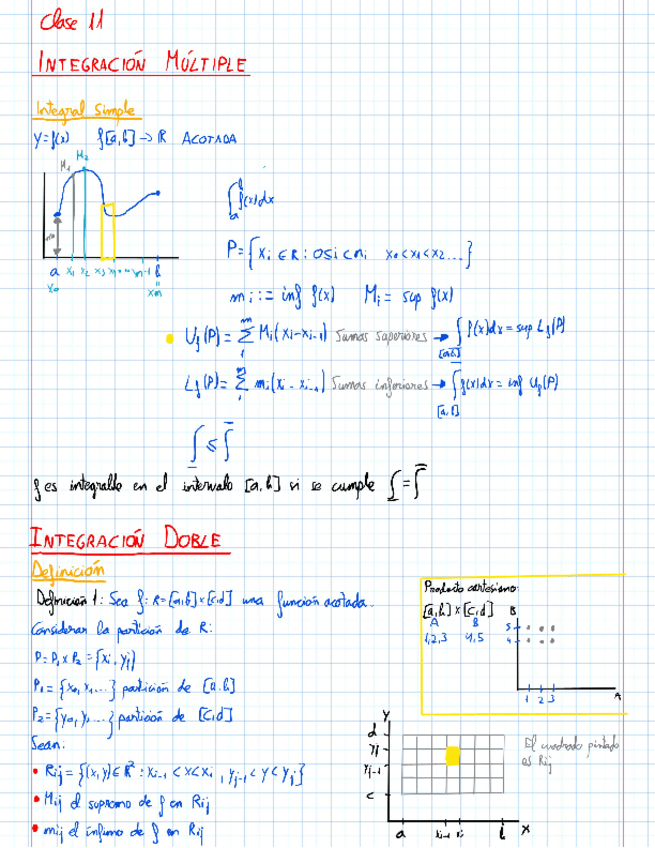 Clase 11
INTEGRACIÓN MÚLTIPLE
Integral Simple
y=f(x) f[a,b]→R ACOTADA
M₁ M₂
a x₁ x₂ x₃ x₄ ... xₙ₋₁ b
x₀ xₙ
∫ₐᵇ f(x)dx
P={xᵢ ∈ R : 0≤i≤n; x₀<x₁<x₂...}
mᵢ := inf f(x) Mᵢ = sup f(x)
U_f(P) = Σ Mᵢ(xᵢ-xᵢ₋₁) Sumas superiores → ∫[a,b] f(x)dx = sup L_f(P)
L_f(P) = Σ mᵢ(xᵢ-xᵢ₋₁) Sumas inferiores → ∫[a,b] f(x)dx = inf U_f(P)
∫ ≤ ∫
f es integrable en el intervalo [a,b] si se cumple ∫ = ∫
INTEGRACIÓN DOBLE
Definición
Definición 1: Sea f: R=[a,b]×[c,d] una función acotada.
Considerar la partición de R:
P=P₁×P₂={xᵢ,yⱼ}
P₁={x₀,x₁...} partición de [a,b]
P₂={y₀,y₁...} partición de [c,d]
Sean:
• Rij={(x,y)∈R²: xᵢ₋₁<x<xᵢ, yⱼ₋₁<y<yⱼ}
• Mij el supremo de f en Rij
• mij el ínfimo de f en Rij
Producto cartesiano:
[a,b]×[c,d]
A B
1,2,3 4,5
B
5
4
1 2 3
A
y
d
yj
yj-1
c
a xi-1 xi b x
El cuadrado pintado
es Rij